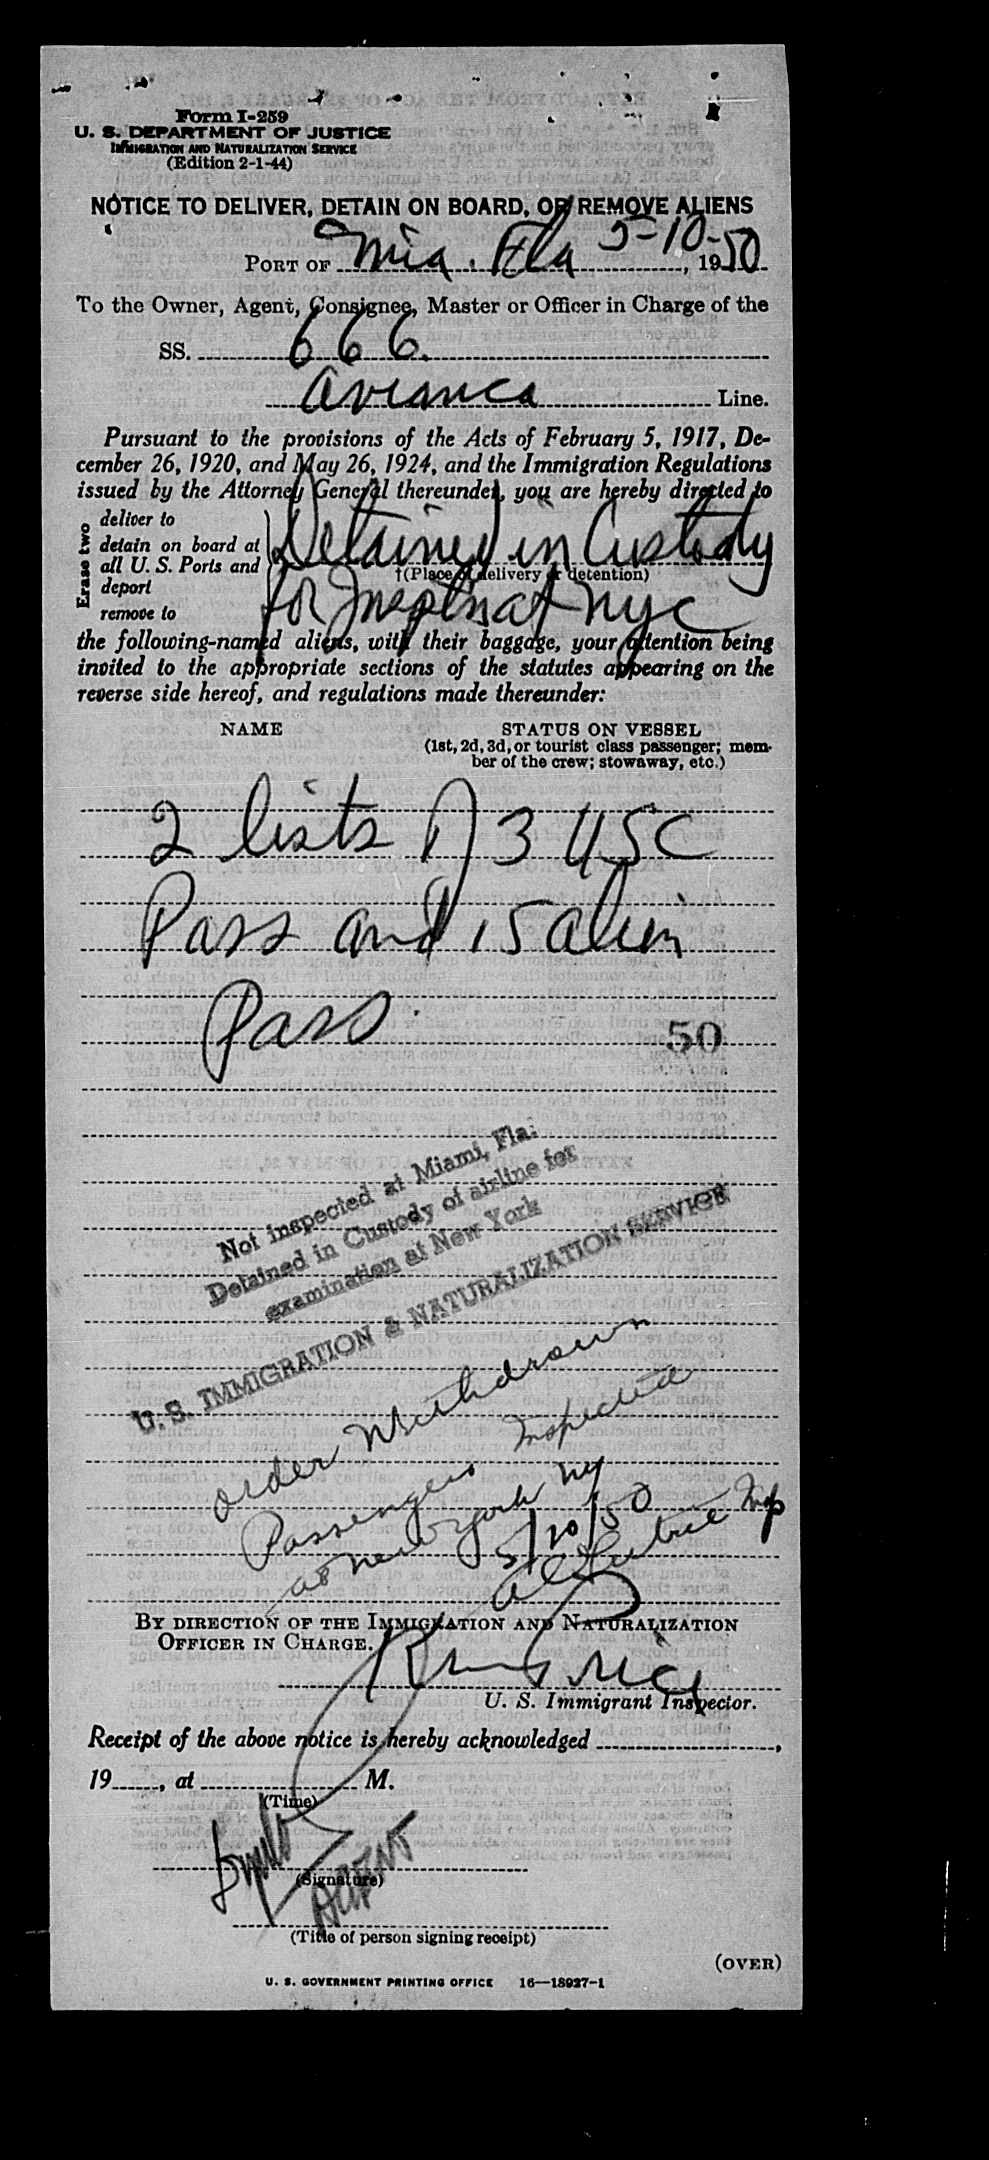 Form I-259
U. S. DEPARTMENT OF JUSTICE
IMMIGRATION AND NATURALIZATION SERVICE
(Edition 2-1-44)
NOTICE TO DELIVER, DETAIN ON BOARD, OR REMOVE ALIENS
PORT OF Mia. Fla 5-10-, 1950
To the Owner, Agent, Consignee, Master or Officer in Charge of the
SS. 666
Avianca Line.
Pursuant to the provisions of the Acts of February 5, 1917, De-
cember 26, 1920, and May 26, 1924, and the Immigration Regulations
issued by the Attorney General thereunder, you are hereby directed to
Erase two
deliver to
detain on board at
all U. S. Ports and
deport
remove to
Detained in Custody
†(Place of delivery or detention)
for Insptn at NYC
the following-named aliens, with their baggage, your attention being
invited to the appropriate sections of the statutes appearing on the
reverse side hereof, and regulations made thereunder:
NAME STATUS ON VESSEL
(1st, 2d, 3d, or tourist class passenger; mem-
ber of the crew; stowaway, etc.)
2 lists 3 USC
Pass and 15 alien
Pass.
50
Not inspected at Miami, Fla.
Detained in Custody of airline for
examination at New York
U. S. IMMIGRATION & NATURALIZATION SERVICE
order Withdrawn
Passengers Inspected
at New York NY
5/10/50
Insp
BY DIRECTION OF THE IMMIGRATION AND NATURALIZATION
OFFICER IN CHARGE.
U. S. Immigrant Inspector.
Receipt of the above notice is hereby acknowledged ,
19 , at M.
(Time)
(Signature)
AGENT
(Title of person signing receipt)
(OVER)
U. S. GOVERNMENT PRINTING OFFICE 16—18927-1